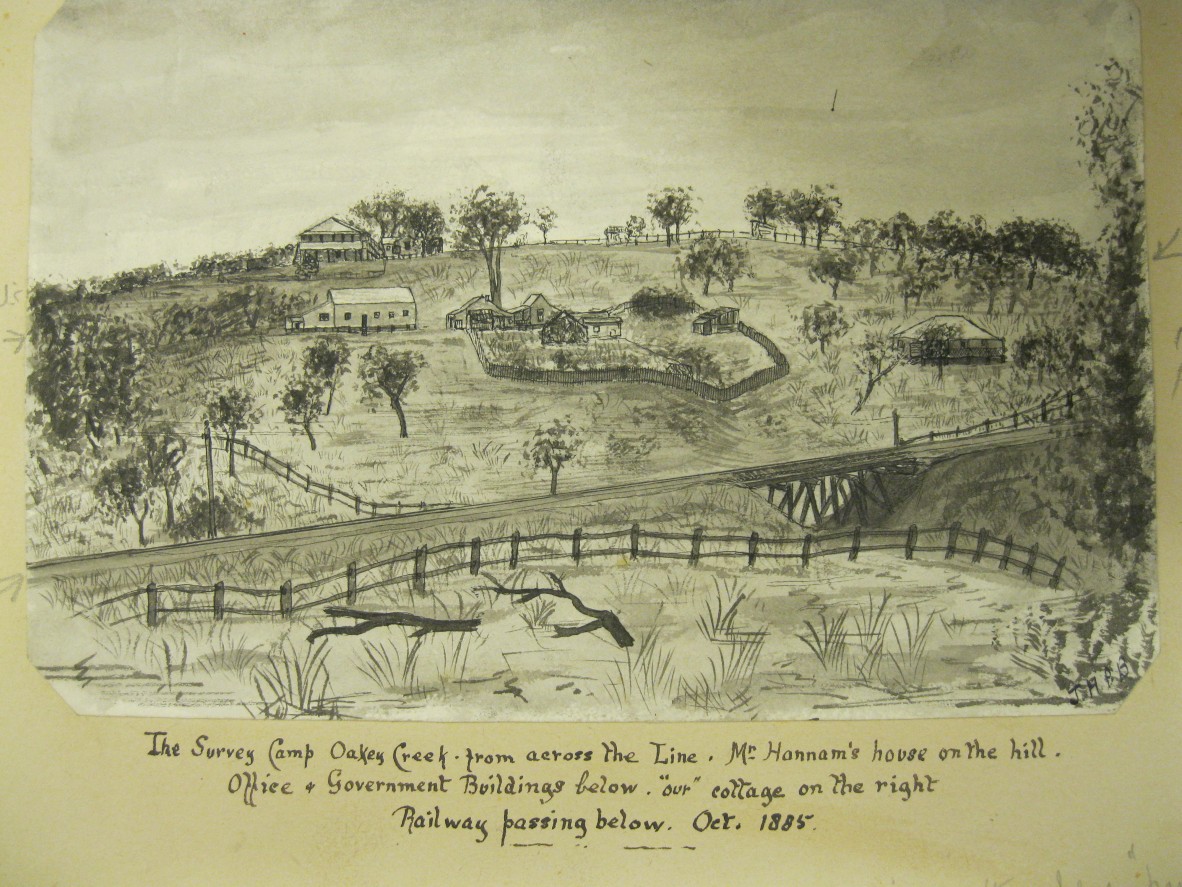 J A B B
The Survey Camp Oakey Creek. from across the Line. Mr Hannam's house on the hill.
Office & Government Buildings below. "our" cottage on the right
Railway passing below. Oct. 1885.